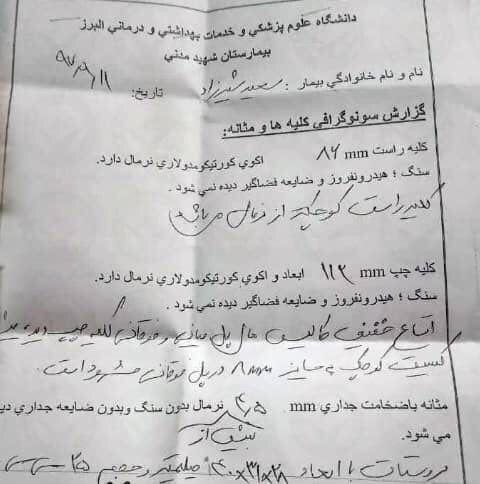 دانشگاه علوم پزشکي و خدمات بهداشتي و درماني البرز
بیمارستان شهید مدني
نام و نام خانوادگي بیمار : سعید شیرزاد تاریخ:
گزارش سونوگرافي کلیه ها و مثانه:
کلیه راست ۸۶ mm اکوي کورتیکومدولاري نرمال دارد.
سنگ ؛ هیدرونفروز و ضایعه فضاگیر دیده نمي شود .
کلیه راست کوچکتر از نرمال میباشد
کلیه چپ ۱۱۲ mm ابعاد و اکوي کورتیکومدولاري نرمال دارد.
سنگ ؛ هیدرونفروز و ضایعه فضاگیر دیده نمي شود .
اتساع خفیف کالیس های پل میانی و فوقانی کلیه چپ دیده
کیست کوچک به سایز ۸mm در پل فوقانی مشهود است.
مثانه باضخامت جداري mm ۴٫۵ نرمال بدون سنگ وبدون ضایعه جداري دی
مي شود. بیش از
پروستات با ابعاد ۴۰×۳۱×۲۸ میلیمتر و حجم ۲۵ سی سی